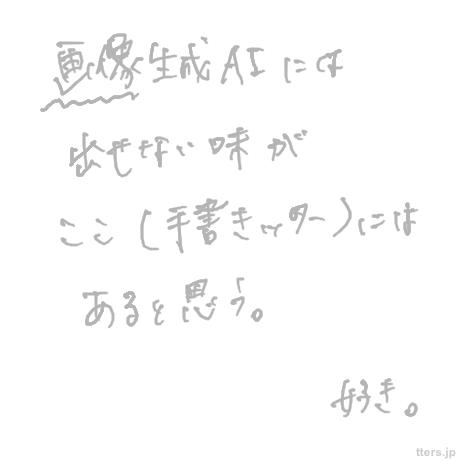 画像生成AIには
出せない味が
ここ(手書きッター)には
あると思う。
好き。
tters.jp